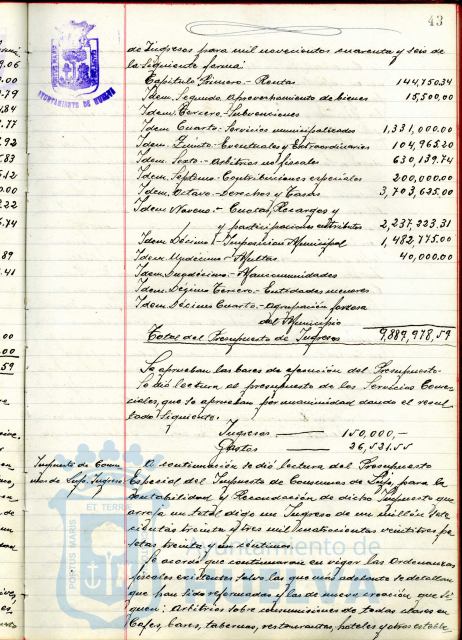 43
de Ingresos para mil novecientos cuarenta y seis de
la siguiente forma:
Capítulo Primero.- Rentas 144,750.34
Idem. Segundo. Aprovechamiento de bienes 15,500.00
Idem. Tercero.- Subvenciones
Idem Cuarto.- Servicios municipalizados 1,331,000.00
Idem. Quinto.- Eventuales y Extraordinarios 104,965.20
Idem. Sexto.- Arbitrios no fiscales 630,139.74
Idem. Séptimo.- Contribuciones especiales 200,000.00
Idem. Octavo.- Derechos y Tasas 3,703,625.00
Idem Noveno.- Cuotas, Recargos y
y participaciones en tributos 2,237,223.31
Idem. Décimo.- Imposición Municipal 1,482,775.00
Idem. Undécimo.- Multas 40,000.00
Idem. Duodécimo.- Mancomunidades
Idem. Décimo Tercero.- Entidades menores
Idem. Décimo Cuarto.- Agrupación forzosa
del Municipio
Total del Presupuesto de Ingresos 9,889,978,59
Se aprueban las bases de ejecución del Presupuesto.
Se dió lectura al presupuesto de los Servicios Comer-
ciales, que se aprueban por unanimidad dando el resul-
tado siguiente.
Ingresos 150,000,-
Gastos 26,521.55
Impuesto de Consu-
mos de Lujo. Ingresos
A continuación se dió lectura del Presupuesto
Especial del Impuesto de Consumos de Lujo, para la
Contabilidad y Recaudación de dicho Impuesto que
arroja un total digo un Ingreso de un millón
cientas treinta y tres mil cuatrocientas veintitres pe-
setas treinta y
Se acordó que continuaran en vigor las Ordenanzas
fiscales existentes salvo las que más adelante se detallan
que han sido reformadas y las de nueva creación que si-
guen: Arbitrios sobre consumisiones de todas clases en
Cafes, bares, tabernas, restaurantes, hoteles y otros estable
AYUNTAMIENTO DE HUELVA
PORTUS MARIS ET TERRAE
Ayuntamiento de